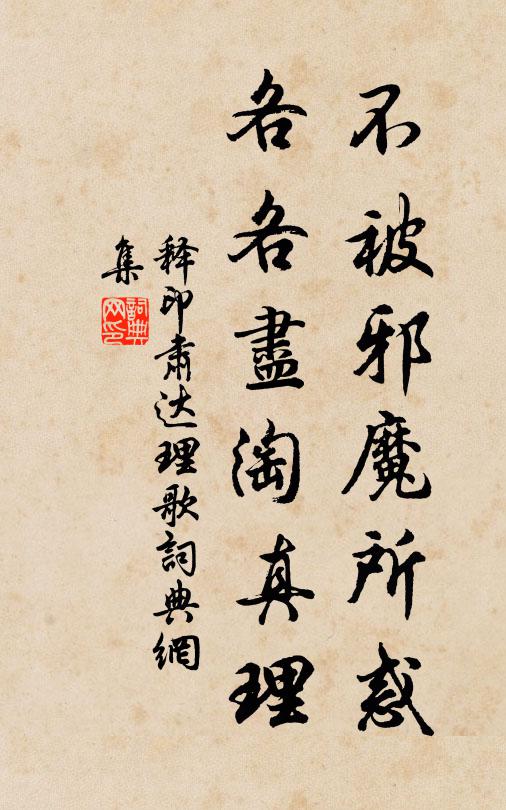 不被邪魔所惑
各各盡淘真理
释印肃达理歌詞典網
集
詞典网印